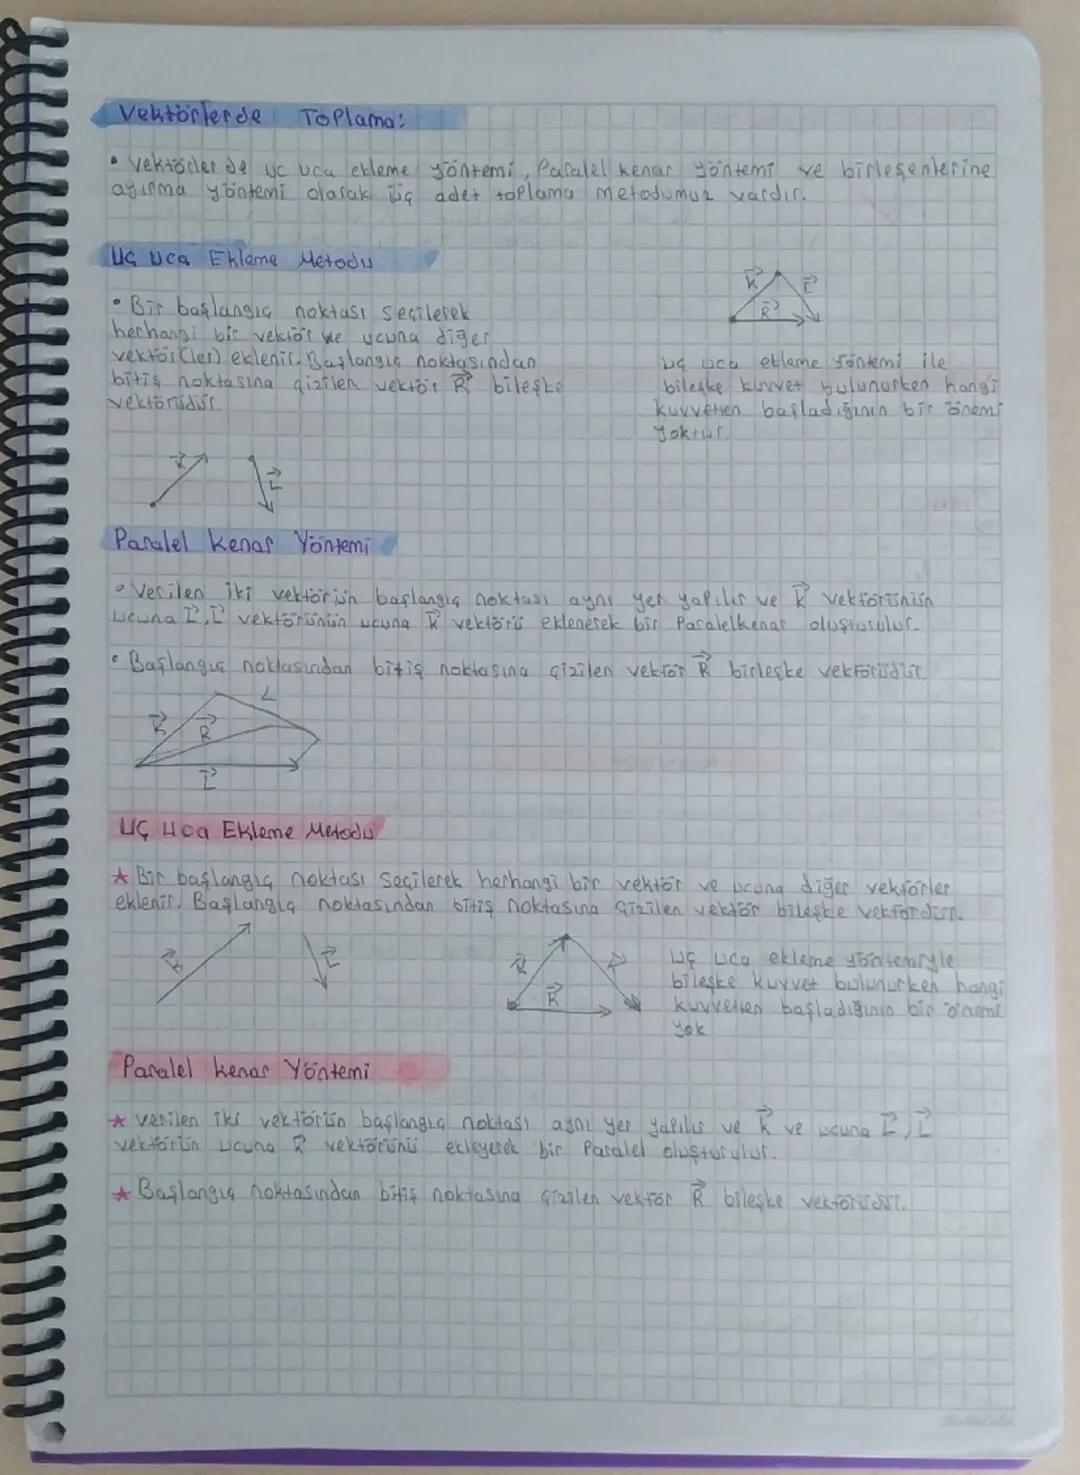 Vektörlerde Toplama:
• Vektörler de uc uca ekleme yöntemi, Paralel kenar yöntemi ve birleşenlerine
ayırma yöntemi olarak üç adet toplama metodumuz vardır.
Uç uca Ekleme Metodu
• Bir başlangıç noktası seçilerek
herhangi bir vektör ve ucuna diğer
vektör(ler) eklenir. Başlangıç noktasından
bitiş noktasına çizilen vektör R bileşke
vektörüdür.
K L
R
uç uca ekleme yöntemi ile
bileşke kuvvet bulunurken hangi
kuvvetten başladığının bir önemi
yoktur.
K L
Paralel kenar Yöntemi
• Verilen iki vektörün başlangıç noktası aynı yer yapılır ve K vektörünün
ucuna L, L vektörünün ucuna K vektörü eklenerek bir Paralelkenar oluşturulur.
• Başlangıç noktasından bitiş noktasına çizilen vektör R birleşke vektörüdür.
L
K R
L
Uç Uca Ekleme Metodu
★ Bir başlangıç noktası seçilerek herhangi bir vektör ve ucuna diğer vektörler
eklenir. Başlangıç noktasından bitiş noktasına çizilen vektör bileşke vektördür.
K L
R
uç uca ekleme yöntemiyle
bileşke kuvvet bulunurken hangi
kuvvetten başladığının bir önemi
yok
Paralel kenar Yöntemi
★ verilen iki vektörün başlangıç noktası aynı yer yapılır ve K ve ucuna L, L
vektörün ucuna K vektörünü ekleyerek bir Paralel oluşturulur.
★ Başlangıç noktasından bitiş noktasına çizilen vektör R bileşke vektörüdür.